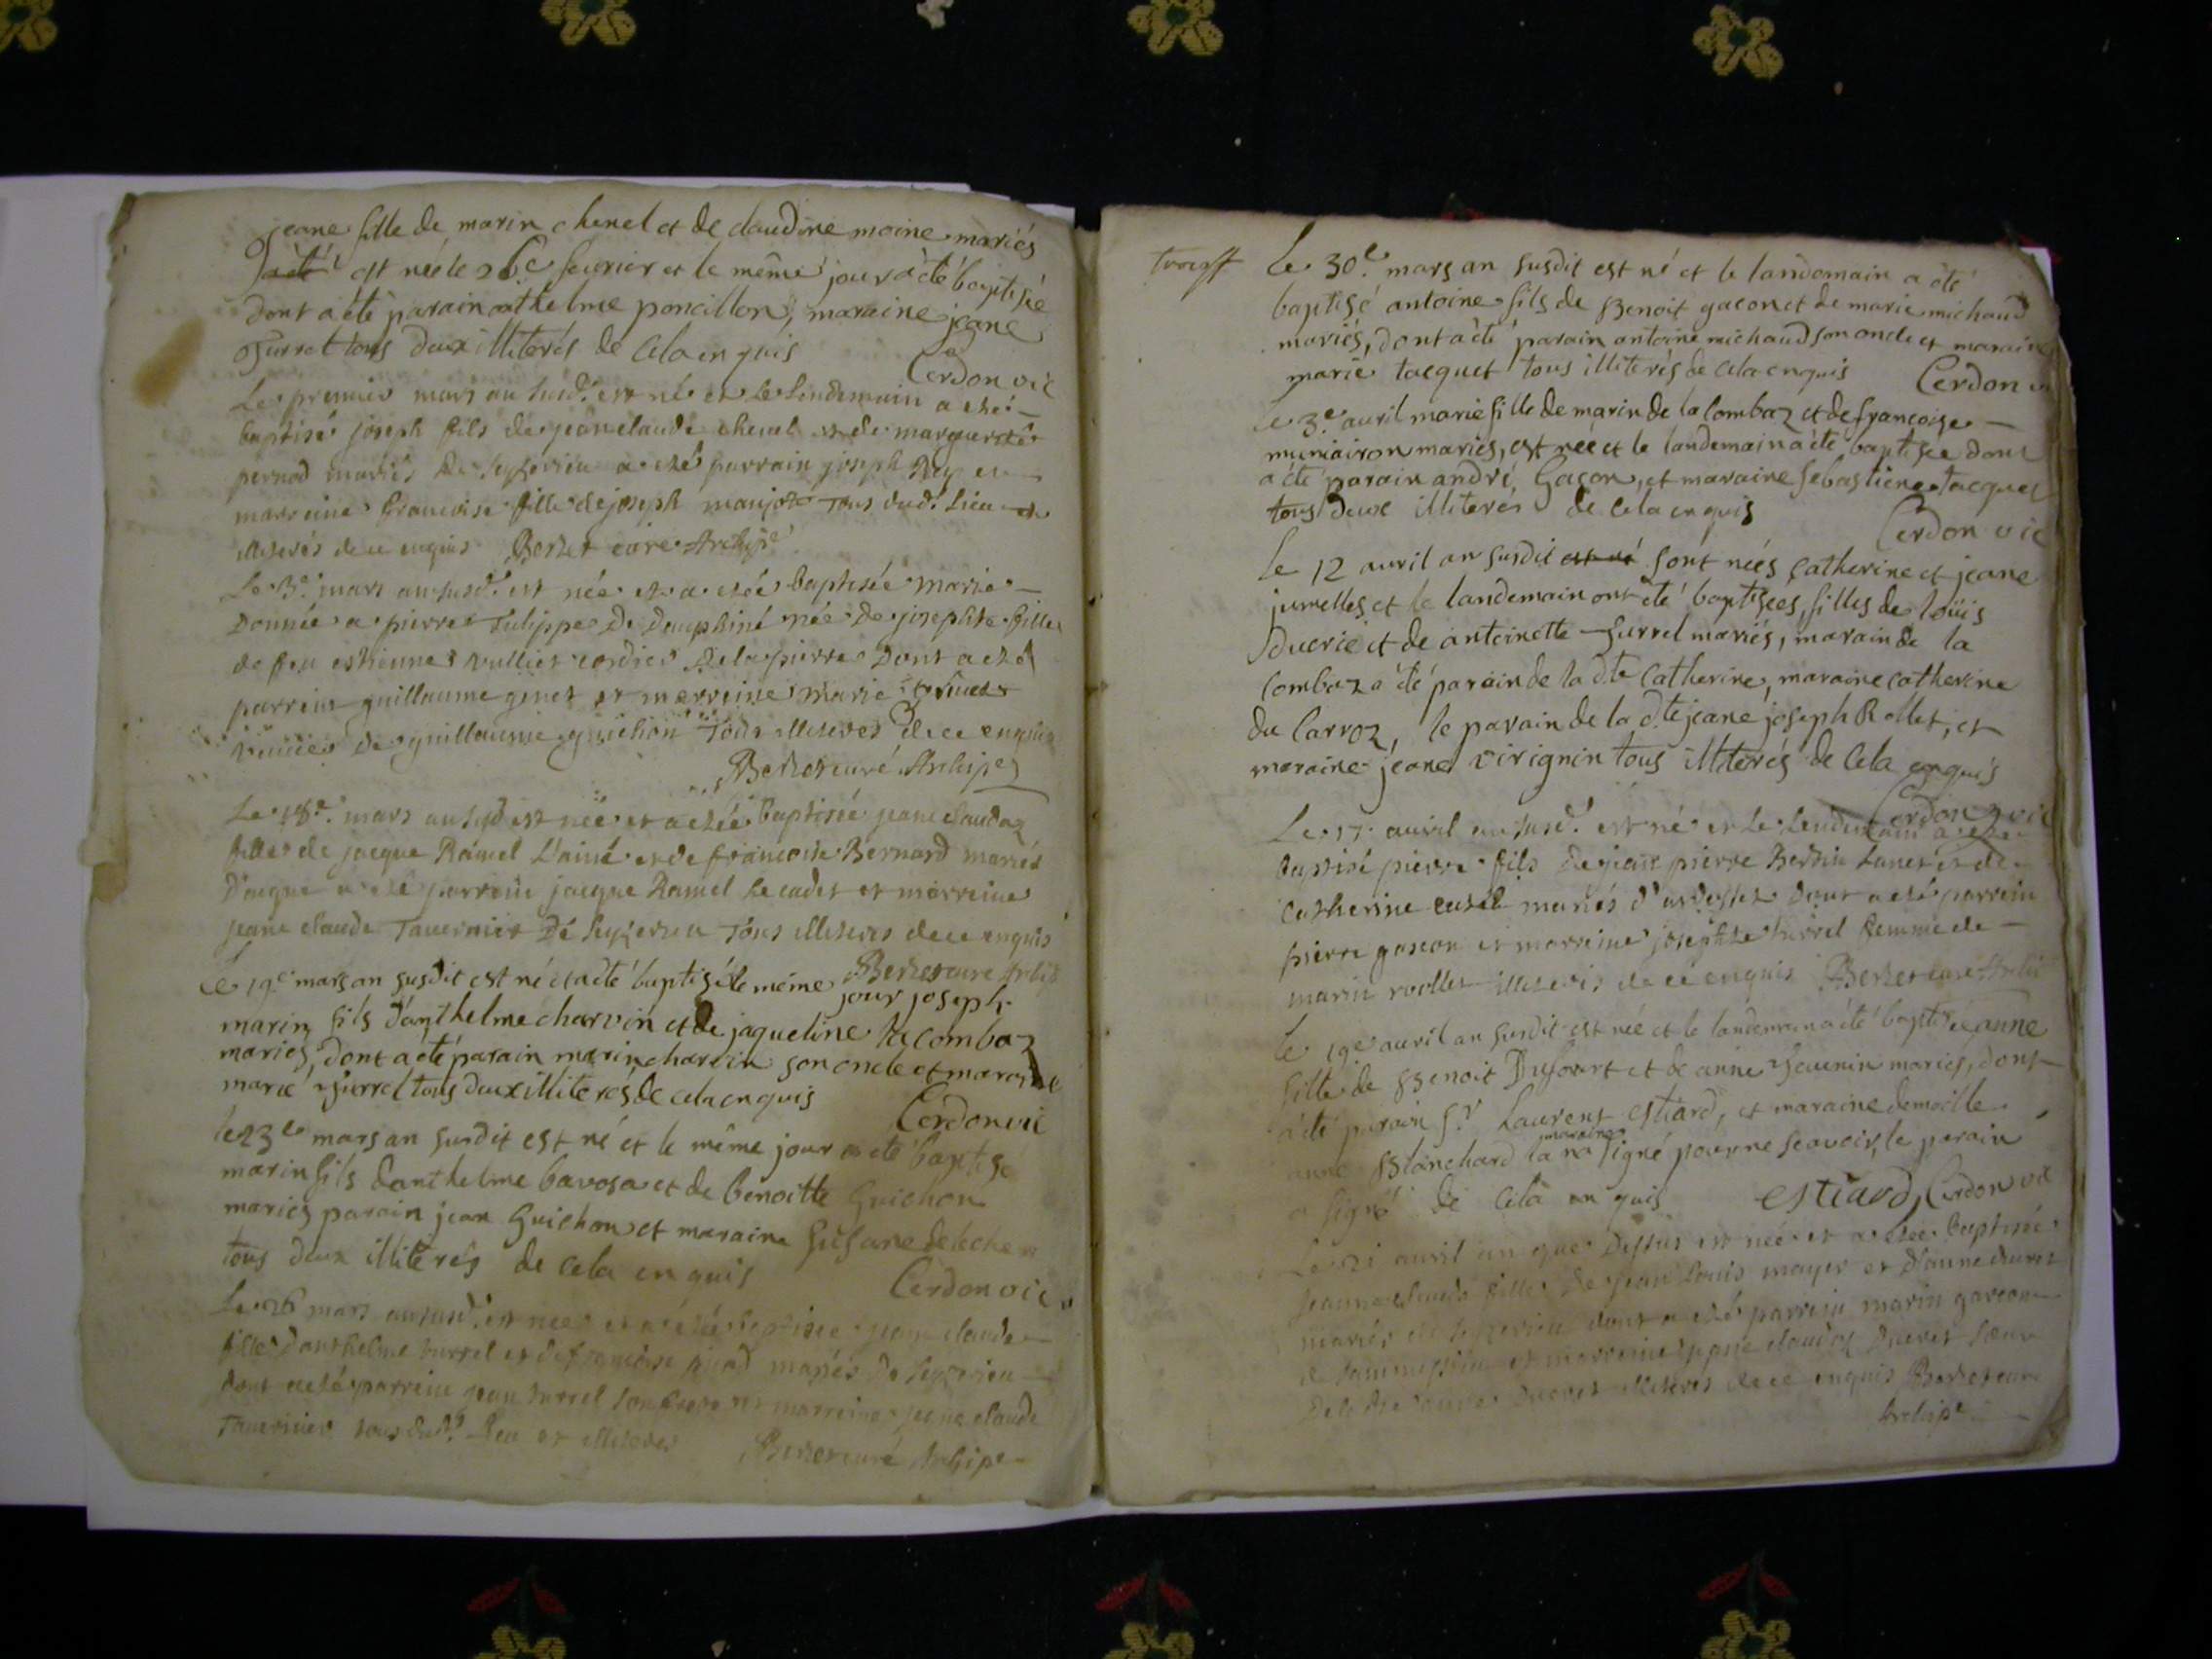 jeane fille de marin chenel et de claudine moine mariés
est née le 26e feurier et le même jour a été baptisée
dont a été parain anthelme poncillon, maraine jeane
Surrel tous deux illiterés de cela enquis
Cerdon vic
Le premier mars an susd.t est né et le lendemain a esté
baptisé joseph fils de jean claude chenel et de marguerite
pernod mariés de seyserieu a esté parrain joseph Rey et
marreine francoise fille de joseph manjot tous dud.t lieu et
illiterés de ce enquis Berlet curé Archip.e
Le 3.e mars an susd.t est née et a estée baptisée marie
donnée a pierre Tulippe De Dauphiné née de josephte fille
de feu estienne vulliet cordier de la pierre dont a esté
parrein guillaume genet et marreine marie
de guillaume guichon Tous illiteres de ce enquis
Berlet curé Archip.e
Le 18.e mars an susd est née et a estée baptisée jeane claudaz
fille de jacque Ramel L'ainé et de francoise Bernard mariés
d'aigne a esté parrein jacque Ramel le cadet et marreine
jeane claude Tavernier De seyserieu Tous illiteres de ce enquis
Berlet curé Archip
Le 19.e mars an susdit est né et a été baptisé le même jour joseph
marin fils d'anthelme charvin et de jaqueline la combaz
mariés, dont a été parain marin charvin son oncle et maraine
marie Surrel tous deux illiteres de cela enquis
Cerdon vic
le 23e mars an susdit est né et le même jour a été baptisé
marin fils danthelme bavosa et de benoitte Guichon
mariés parain jean Guichon et maraine Susane
tous deux illiterés de cela enquis
Cerdon vic
Le 26 mars an susd.t est née et a estée baptisée jeane claude
fille d'anthelme surrel et de francoise mariés de seyserieu
dont a esté parrein jean surrel son frere et marreine jeane claude
Tavernier tous dud.t lieu et illiteres Berlet curé Archip.e
Le 30.e mars an susdit est né et le landemain a été
baptisé antoine fils de Benoit gacon et de marie michaud
mariés, dont a été parain antoine michaud son oncle et maraine
marie tacquet tous illiterés de cela enquis Cerdon
le 3.e auril marie fille de marin de la combaz et de françoise
mariés, est née et le landemain a été baptisée dont
a été parain andré Gacon, et maraine sebastiene tacquet
tous deux illiterés de cela enquis
Cerdon vic
Le 12 auril an susdit est né sont nées catherine et jeane
jumelles et le landemain ont été baptisées, filles de loüis
Ducrie et de antoinette Surrel mariés, marain de la
combaz a été parain de la d.te catherine, maraine catherine
du Carroz, le parain de la d.te jeane joseph Rollet, et
maraine jeane virignin tous illiterés de cela enquis
Cerdon vic
Le 17 auril an susd.t est né et le lendemain a esté
baptisé pierre fils de jean pierre Berthin et de
catherine mariés d'ardosset dont a esté parrein
pierre gascon et marreine josephte surrel femme de
marin rollet illiterés de ce enquis Berlet curé Archip
le 19.e auril an susdit est née et le landemain a été baptisée anne
fille de Benoit Dufourt et de anne Jeunin mariés, dont
a été parain s.r Laurent estiard, et maraine demoille
anne Blanchard la maraine na signé pour ne scavoir, le parain
a signé de cela enquis estiard, Cerdon vic
Le 21 auril an que Dessus est née et a estée baptisée
jeanne claude fille de jean louis mayer et d'anne ducret
mariés de seyserieu dont a esté parrein marin garcon
et marreine jeane claudaz Ducret sœur
De la d.te anne ducret illiteres de ce enquis Berlet curé
Archip.e